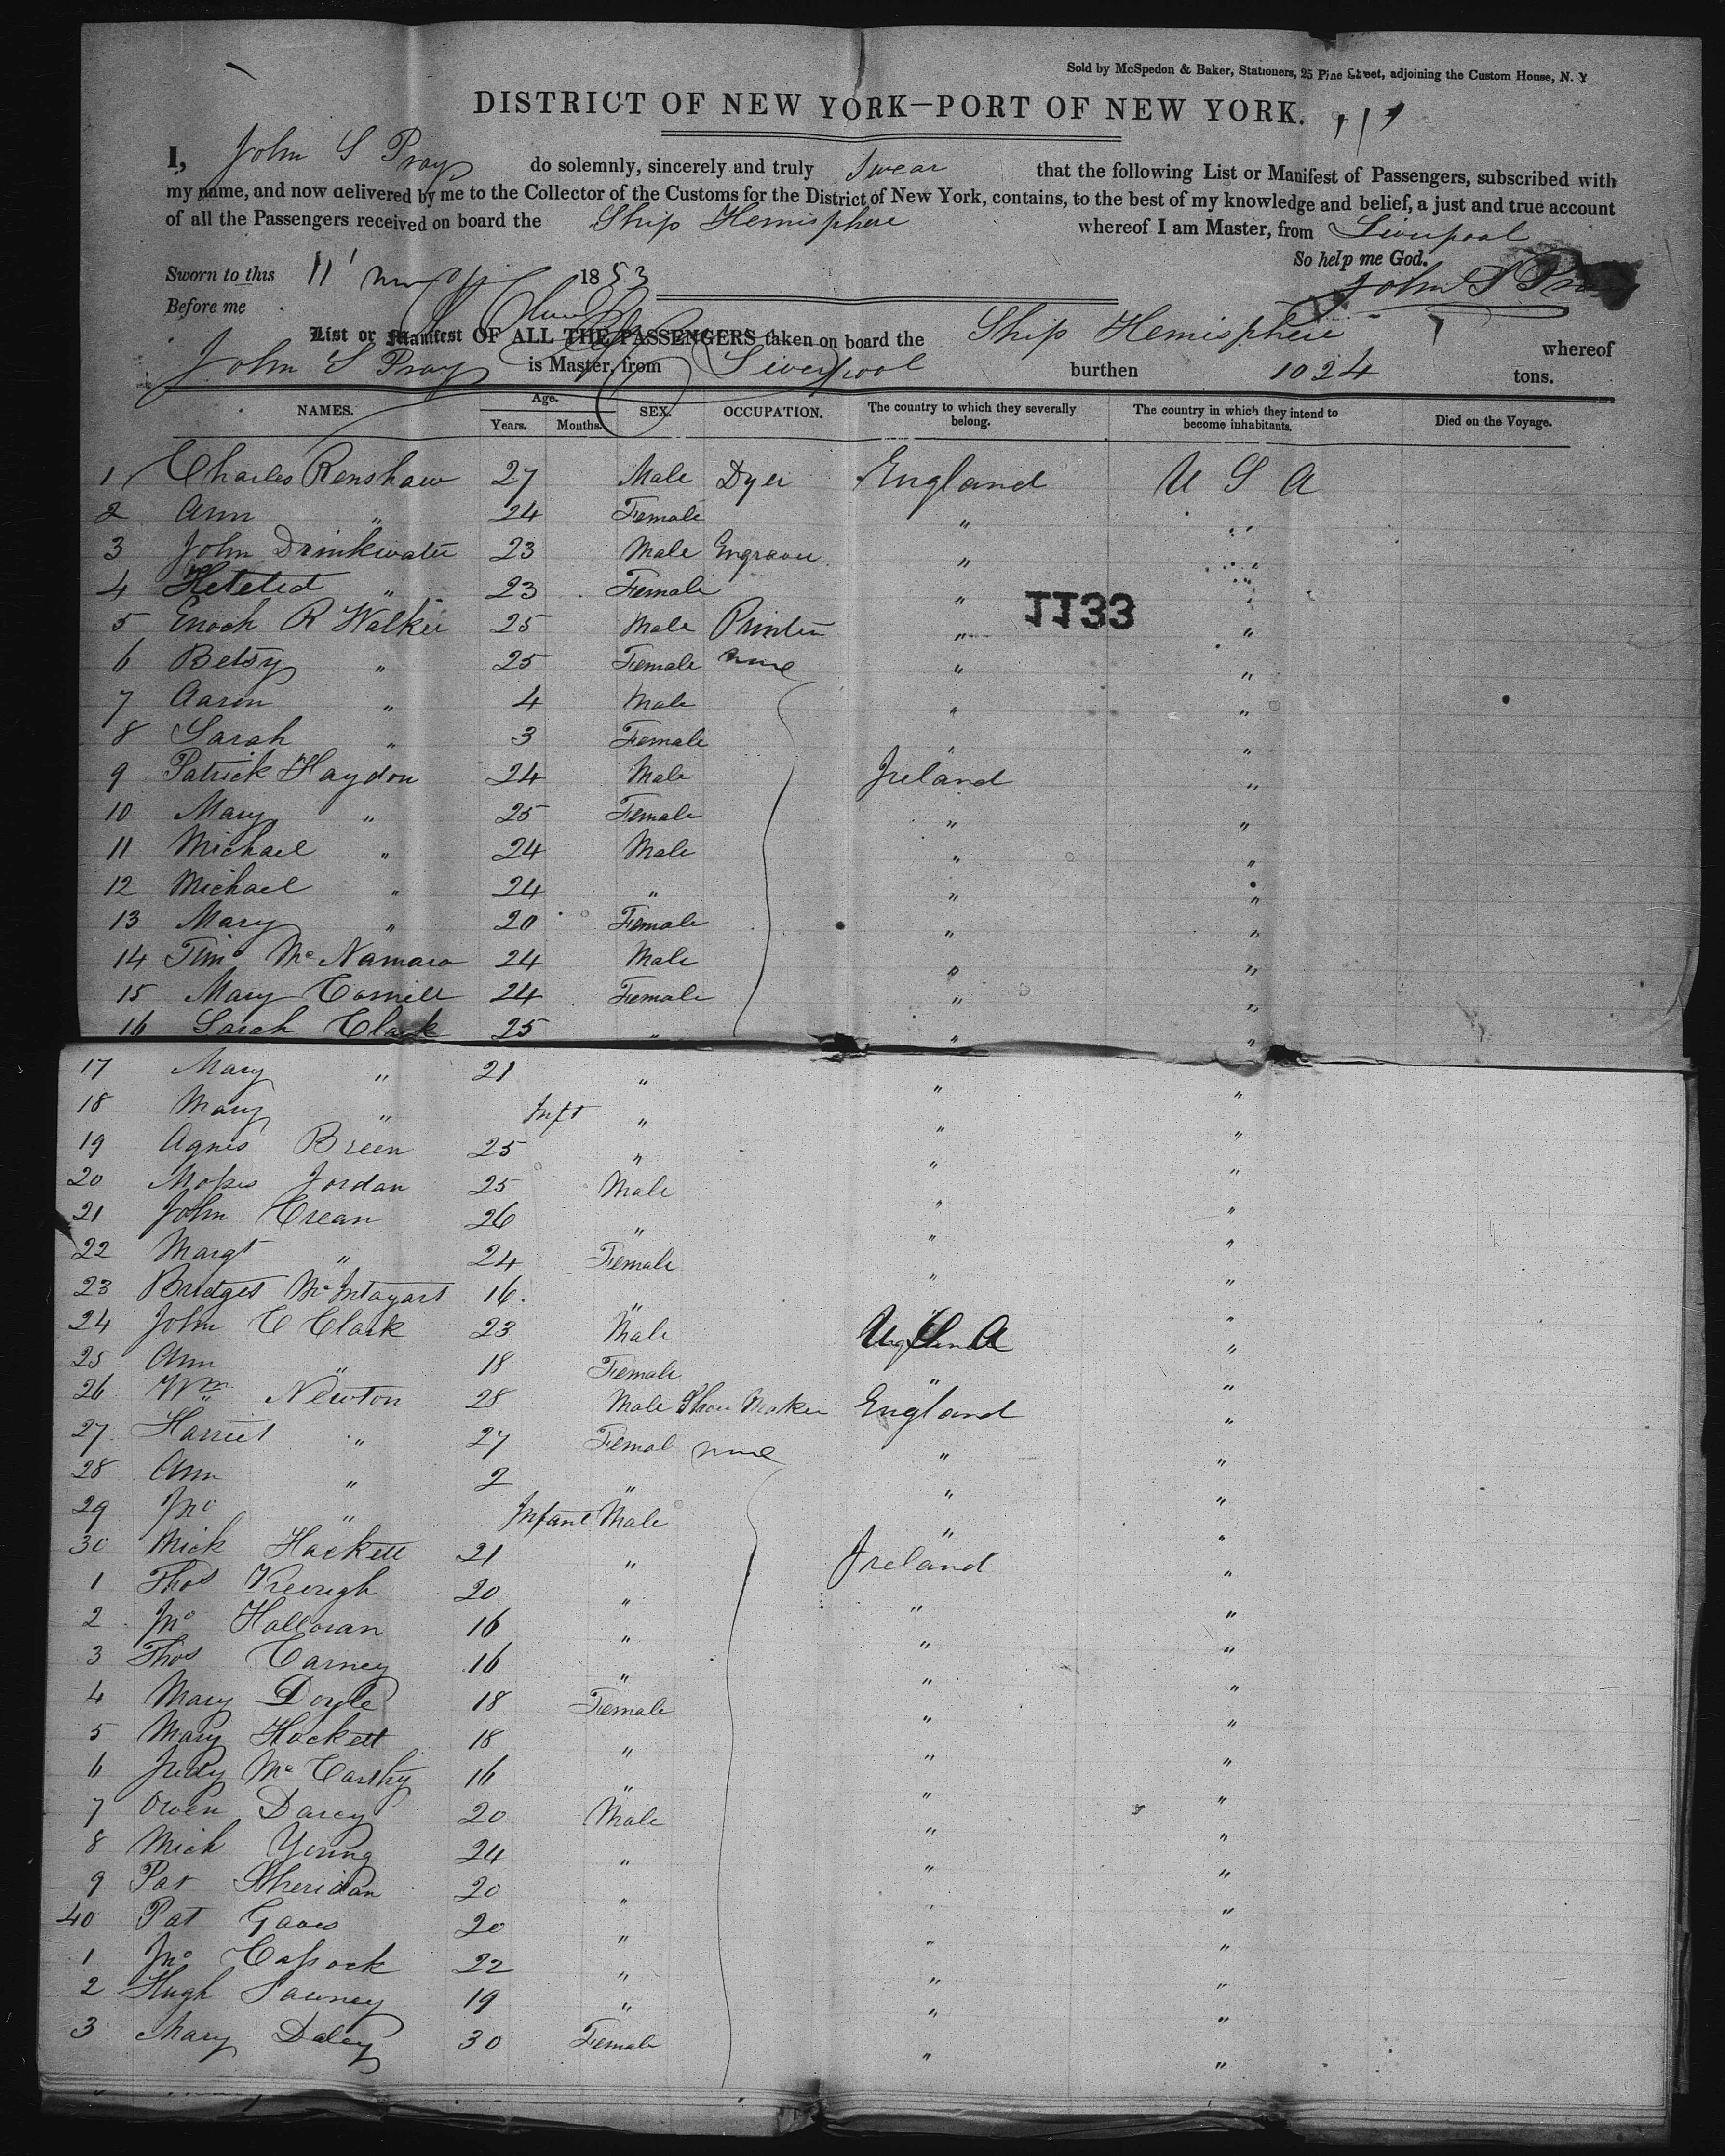 Sold by McSpedon & Baker, Stationers, 25 Pine Street, adjoining the Custom House, N. Y
DISTRICT OF NEW YORK—PORT OF NEW YORK.
I, John S Pray do solemnly, sincerely and truly swear that the following List or Manifest of Passengers, subscribed with
my name, and now delivered by me to the Collector of the Customs for the District of New York, contains, to the best of my knowledge and belief, a just and true account
of all the Passengers received on board the Ship Hemisphere whereof I am Master, from Liverpool
So help me God.
Sworn to this 11 1853 John S Pray
Before me
List or Manifest OF ALL THE PASSENGERS taken on board the Ship Hemisphere whereof
John S Pray is Master, from Liverpool burthen 1024 tons.
NAMES. Age. Years. Months. SEX. OCCUPATION. The country to which they severally belong. The country in which they intend to become inhabitants. Died on the Voyage.
1 Charles Renshaw 27 Male Dyer England U S A
2 Ann " 24 Female " "
3 John Drinkwater 23 Male Engraver " "
4 " 23 Female " "
1133
5 Enoch R Walker 25 Male Printer " "
6 Betsy " 25 Female none " "
7 Aaron " 4 Male " "
8 Sarah " 3 Female " "
9 Patrick Haydon 24 Male Ireland "
10 Mary " 25 Female " "
11 Michael " 24 Male " "
12 Michael " 24 " " "
13 Mary " 20 Female " "
14 Timo McNamara 24 Male " "
15 Mary 24 Female " "
16 Sarah Clark 25 " " "
17 Mary " 21 " " "
18 Mary " Inft " " "
19 Agnes Breen 25 " " "
20 Moses Jordan 25 Male " "
21 John Crean 26 " " "
22 Margt " 24 Female " "
23 Bridget 16 " " "
24 John C Clark 23 Male U S A "
25 Ann " 18 Female " "
26 Wm Newton 28 Male Shoe Maker England "
27 Harriet " 27 Femal none " "
28 Ann " 2 " " "
29 Jno " Infant Male " "
30 Mick Hackett 21 " Ireland "
1 Thos Keough 20 " " "
2 Jno Halloran 16 " " "
3 Thos Carney 16 " " "
4 Mary Doyle 18 Female " "
5 Mary Hackett 18 " " "
6 Judy McCarthy 16 " " "
7 Owen Darcy 20 Male " "
8 Mich Young 24 " " "
9 Pat Sheridan 20 " " "
40 Pat 20 " " "
1 Jno Cassock 22 " " "
2 Hugh 19 " " "
3 Mary Daley 30 Female " "